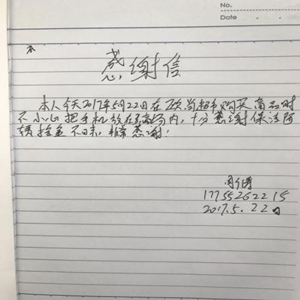 No.
Date
感谢信
本人今天2017年5月22日在 超市购买商品时
不小心把手机放在 内，十分感谢保洁阿
姨拾金不昧，特感谢！
17755262215
2017.5.22日